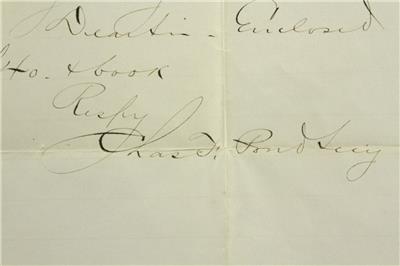 Dear Sir - Enclosed
40. & book
Respy
Chas F. Pond Secy